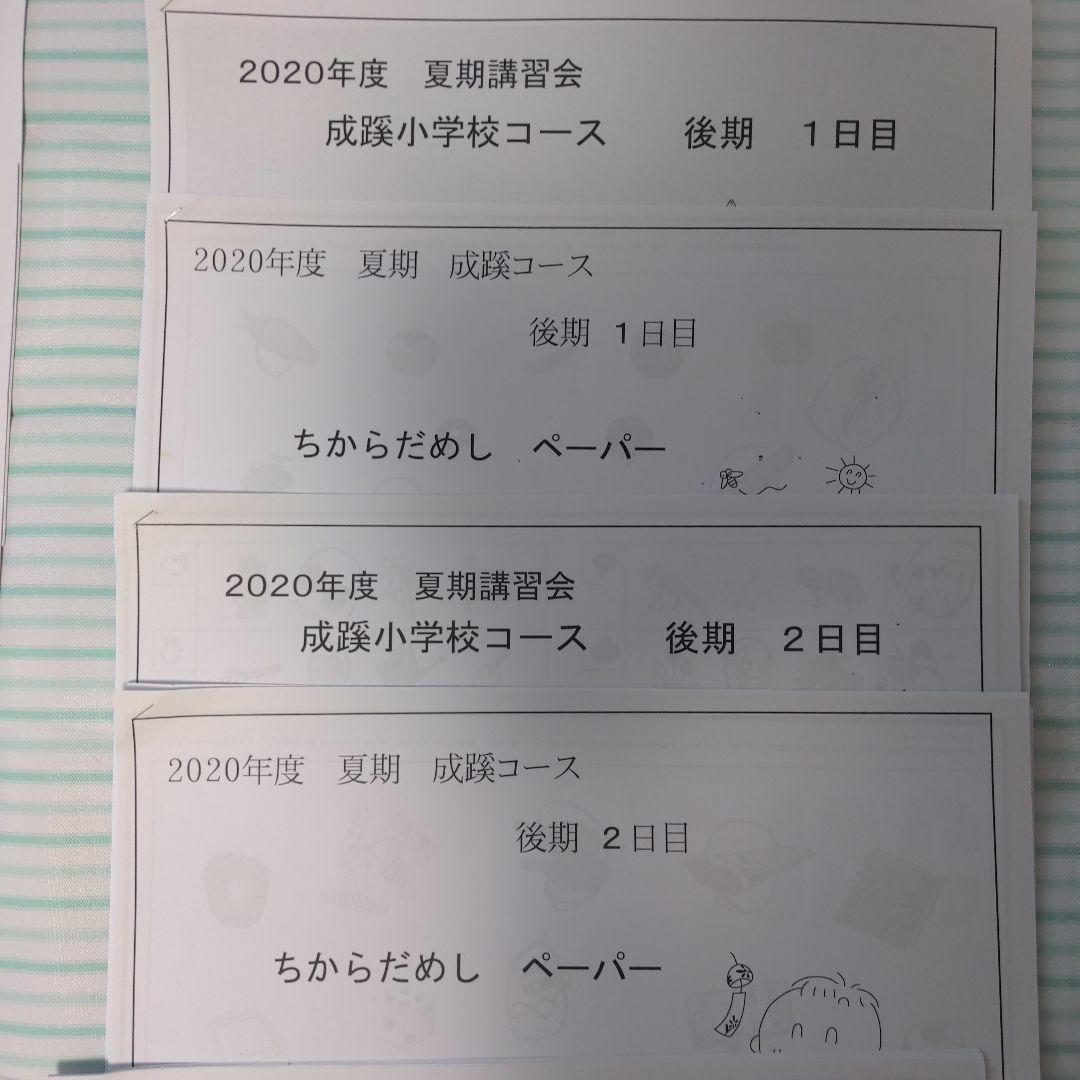 2020年度　夏期講習会
成蹊小学校コース　　後期　1日目
2020年度　夏期　成蹊コース
後期　1日目
ちからだめし　ペーパー
2020年度　夏期講習会
成蹊小学校コース　　後期　2日目
2020年度　夏期　成蹊コース
後期　2日目
ちからだめし　ペーパー